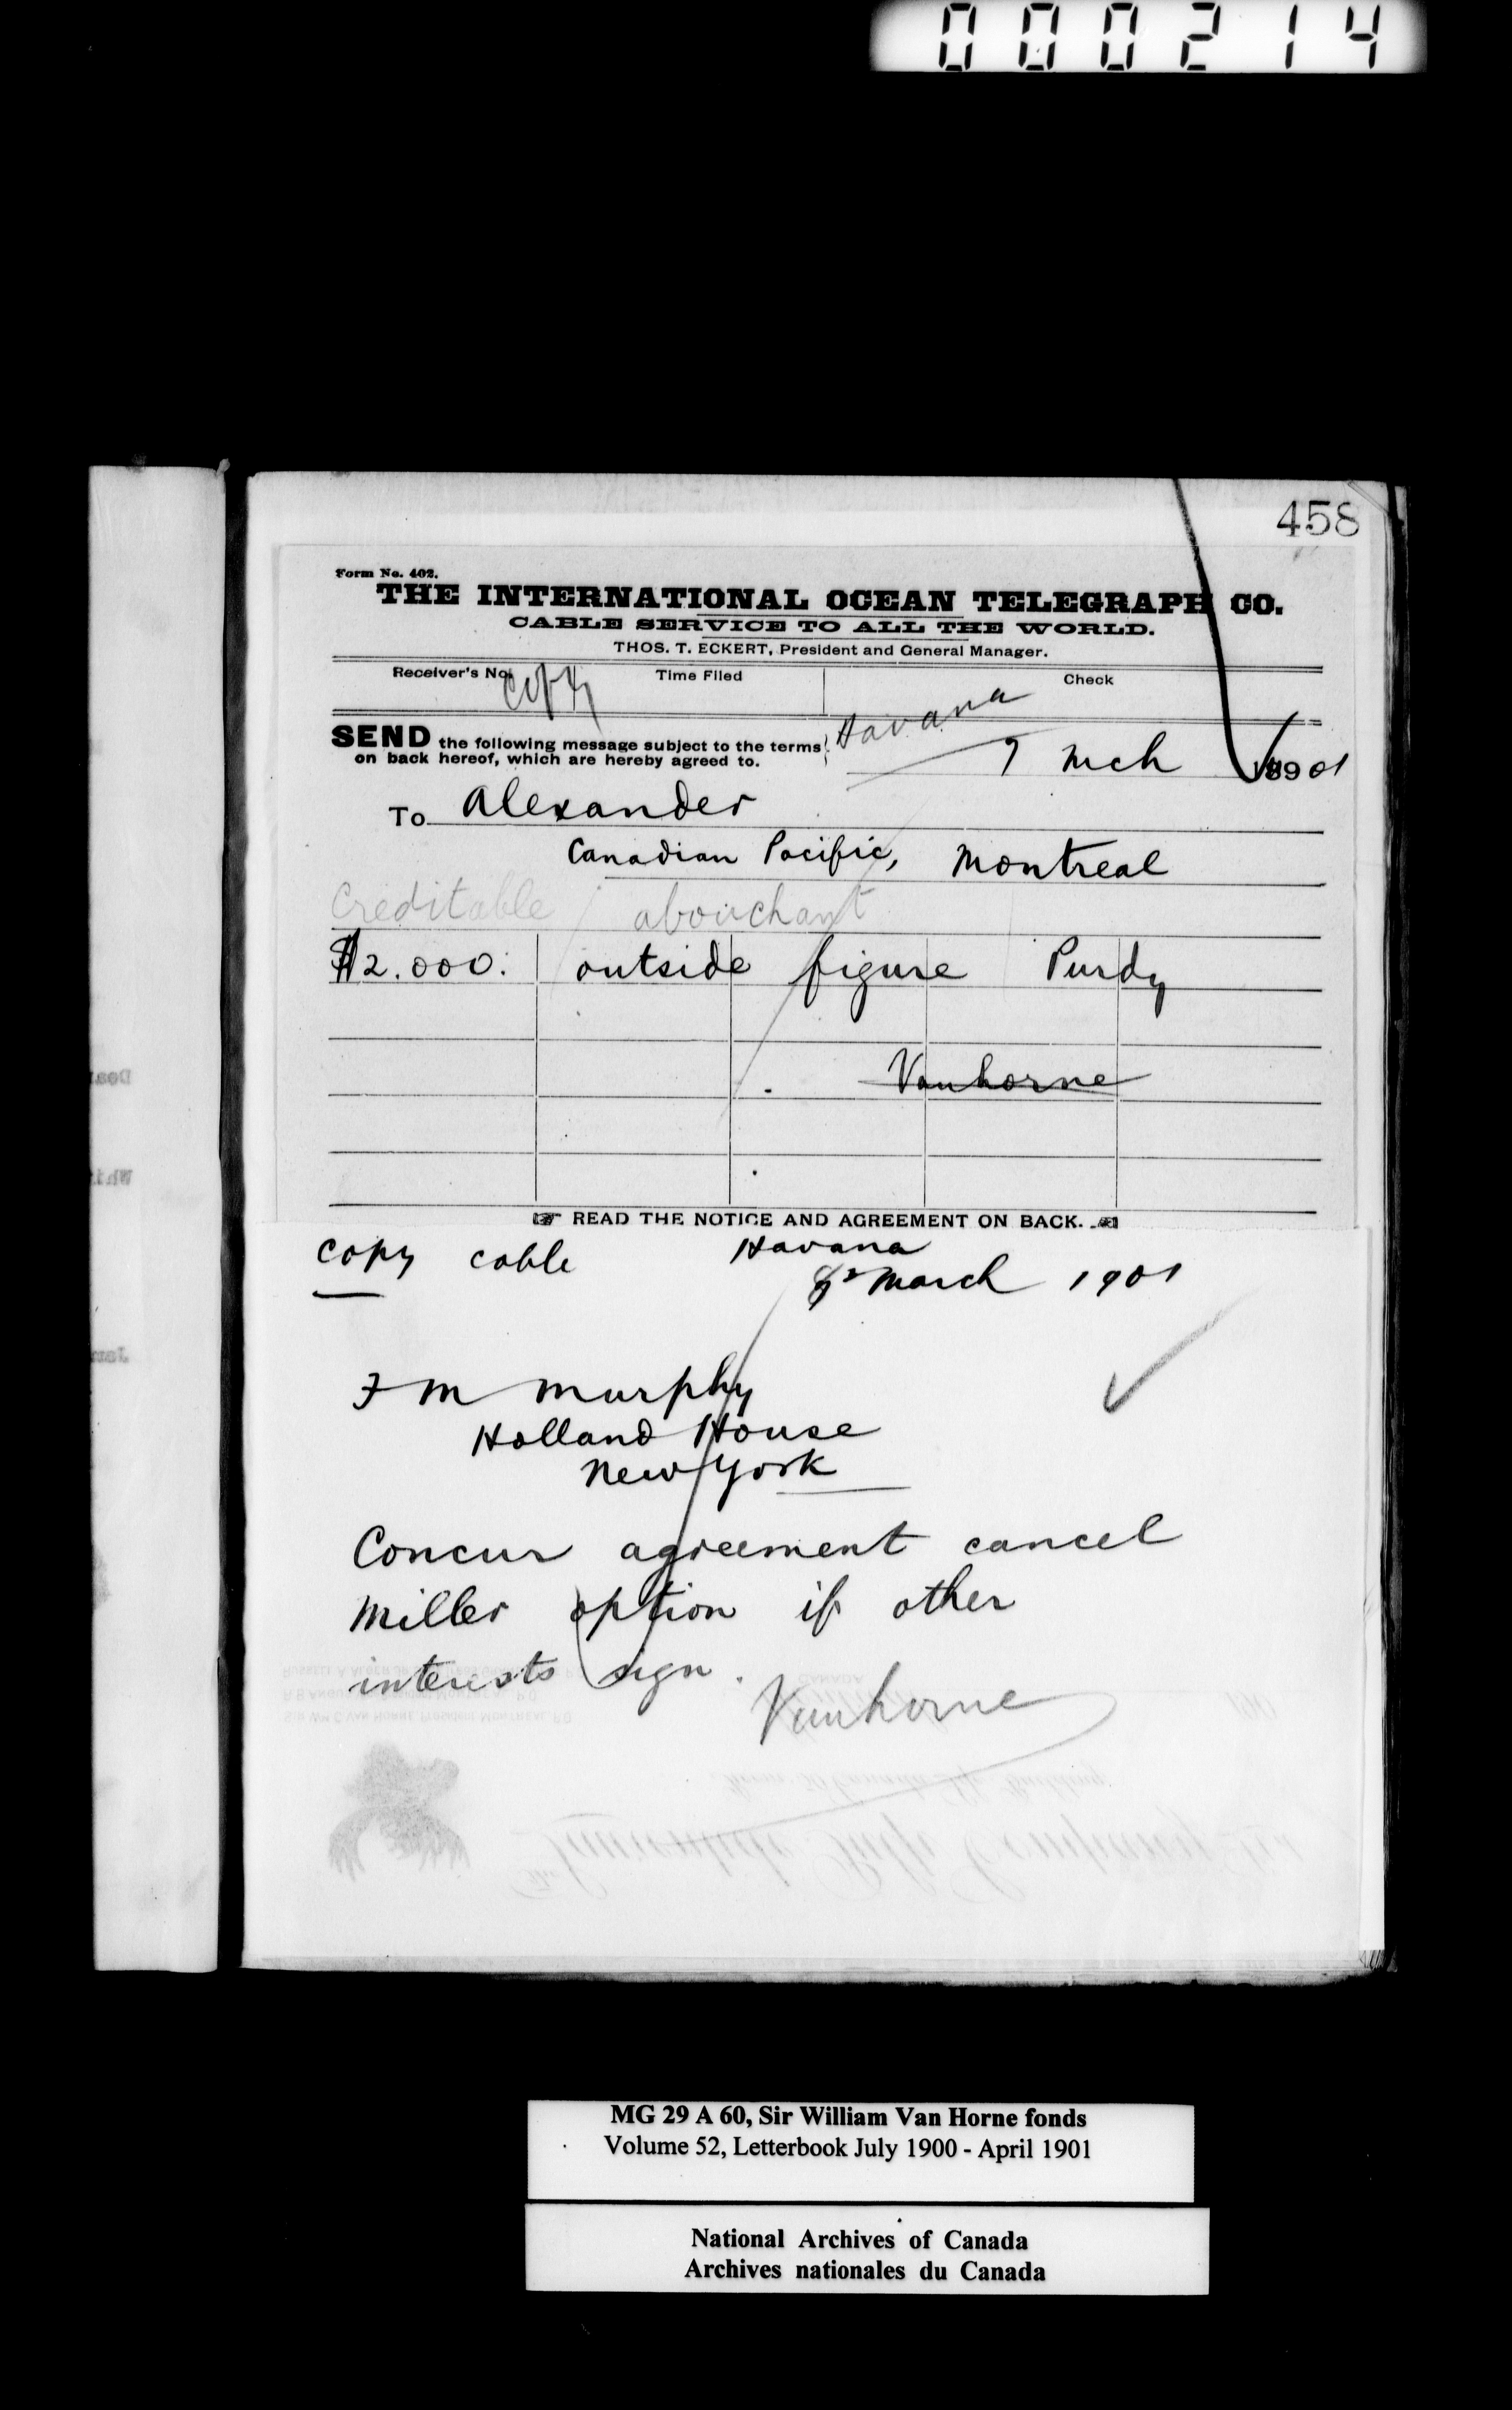 000214
458
Form No. 402.
THE INTERNATIONAL OCEAN TELEGRAPH CO.
CABLE SERVICE TO ALL THE WORLD.
THOS. T. ECKERT, President and General Manager.
Receiver's No. Time Filed Check
Copy
SEND the following message subject to the terms
on back hereof, which are hereby agreed to.
Havana
7 Mch 18901
To Alexander
Canadian Pacific, Montreal
Creditable abouchant
$2.000. outside figure Purdy
Vanhorne
READ THE NOTICE AND AGREEMENT ON BACK.
Copy cable Havana
March 1901
F M Murphy
Holland House
New York
Concur agreement cancel
Miller option if other
interests sign.
Vanhorne
MG 29 A 60, Sir William Van Horne fonds
Volume 52, Letterbook July 1900 - April 1901
National Archives of Canada
Archives nationales du Canada